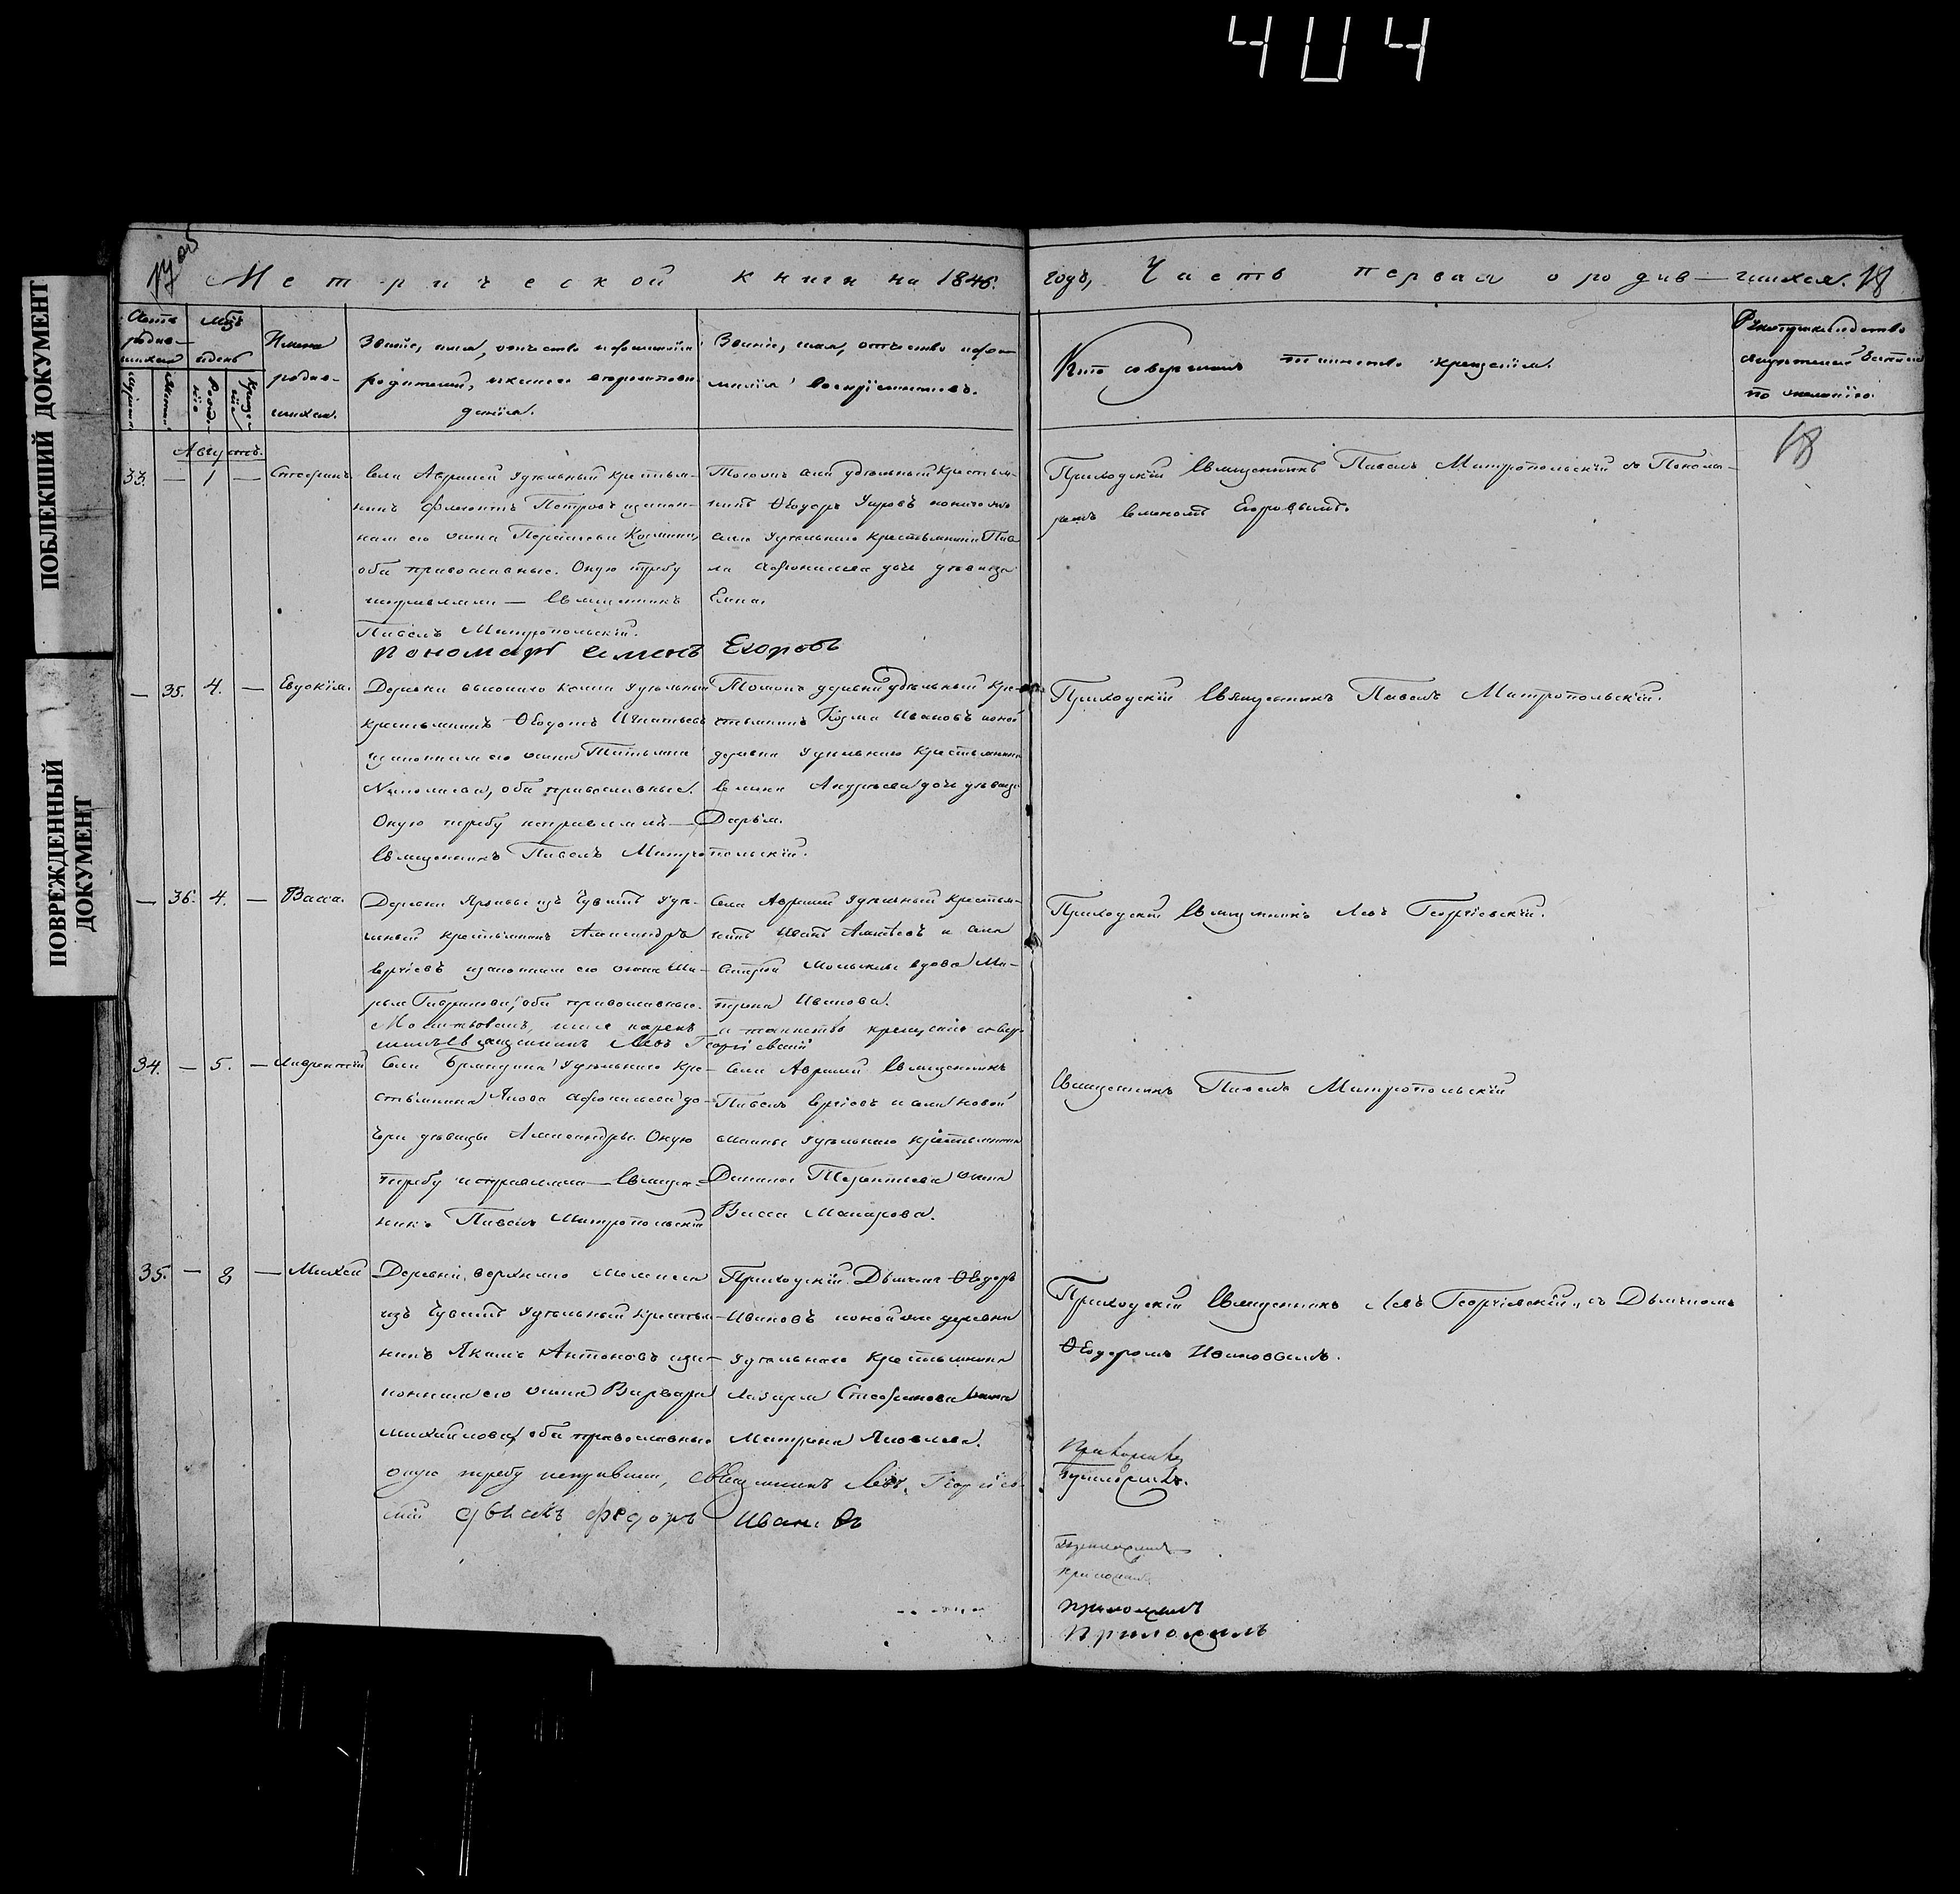 404
ПОБЛЕКШИЙ ДОКУМЕНТ
ПОВРЕЖДЕННЫЙ ДОКУМЕНТ
17 об
Метрической книги на 1846.
годъ, Часть первая о родив—шихся. 18
Счетъ родив—шихся
Мцъ и день
Имена родив—шихся.
Званіе, имя, отчество и фамилія родителей, и какого вероисповеданія.
Званіе, имя, отчество и фамилія воспріемниковъ.
Кто совершалъ таинство крещенія.
Рукоприкладство свидетелей записи по желанію.
18
Августъ.
33. — 1 — Стефанъ
Села Авралей удельный крестья—
нинъ Филиппъ Петровъ и закон—
ная его жена Козмина,
оба православные. Оную требу
исправляли — Священникъ
Павелъ Митропольскій.
Пономарь Семенъ Егоровъ
Тогожъ села удельный крестья—
нинъ Ѳеодоръ и тогожъ
села удельнаго крестьянина Пав
ла Афонасьева дочь девица
Елена.
Приходскій Священникъ Павелъ Митропольскій съ Понома—
ремъ Семеномъ Егоровымъ.
— 35. 4. — Евдокія.
Деревни удельный
крестьянинъ Ѳеодотъ Игнатьевъ
и законная его жена Татьяна
Николаева, оба православные.
Оную требу исправлялъ —
Священникъ Павелъ Митропольскій.
Тогожъ деревни удельный кре—
стьянинъ Козма Ивановъ и оной
деревни удельнаго крестьянина
Семена Андреева дочь девица
Дарья.
Приходскій Священникъ Павелъ Митропольскій.
— 36. 4. — Васса.
Деревни изъ Чувашъ уде—
льный крестьянинъ Александръ
Сергіевъ и законная его жена Ма—
рья Гаврилова, оба православные.
Молитвовалъ, имя нарекъ и таинство крещенія совер—
шилъ Священникъ Левъ Георгіевскій
Села Авралей удельный крестья—
нинъ Иванъ Алексеевъ и села
вдова Ма—
трона Иванова.
Приходскій Священникъ Левъ Георгіевскій.
34. — 5. — Лаврентій
Села Бряндина удельнаго кре—
стьянина Якова Афонасьева до—
чери девицы Александры. Оную
требу исправляли — Священ—
никъ Павелъ Митропольскій
Села Авралей Священникъ
Павелъ Сергіевъ и села Новой
удельнаго крестьянина
Данила Терентьева жена
Васса Макарова.
Священникъ Павелъ Митропольскій
35. — 8 — Михей
Деревни верхняго Мелекеса
изъ Чувашъ удельный крестья—
нинъ Якимъ Антоновъ и за—
конная его жена Варвара
Михайлова, оба православные
оную требу исправили, Священникъ Левъ Георгіев—
скій дьячекъ Федоръ Ивановъ
Приходскій Дьячекъ Ѳеодоръ
Ивановъ и оной же деревни
удельнаго крестьянина
Лазаря Стефанова жена
Матрона Яковлева.
Приходскій Священникъ Левъ Георгіевскій, съ Дьячкомъ
Ѳеодоромъ Ивановымъ.
приложилъ
приложилъ